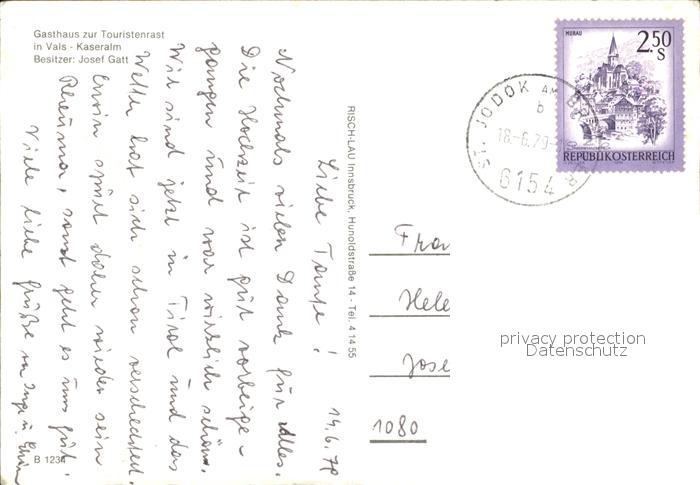 Gasthaus zur Touristenrast
in Vals - Kaseralm
Besitzer: Josef Gatt
14.6.79
Liebe Tante!
Nochmals vielen Dank für Alles.
Die Hochzeit ist gut vorbeige-
gangen und war wirklich schön.
Wir sind jetzt in Tirol und das
Wetter hat sich schon verschlechtert.
Erwin spürt daher wieder sein
Rheuma, sonst geht es uns gut.
Viele liebe Grüße von Inge u. Erwin
B 1234
RISCH-LAU Innsbruck, Hunoldstraße 14 - Tel. 4 14 55
MURAU
2.50
S
REPUBLIK ÖSTERREICH
ST. JODOK AM BRENNER
b
18.-6.79-
6154
Frau
Hele
Jose
1080
privacy protection
Datenschutz